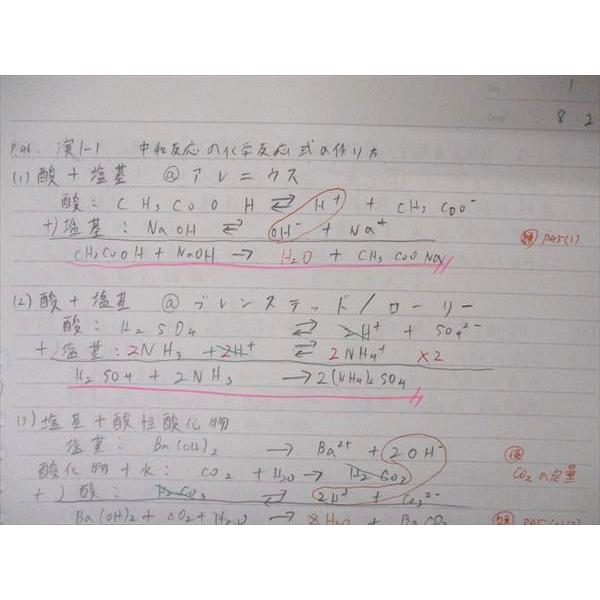 No. 1
Date 8 2
P.46 演1-1 中和反応の化学反応式の作り方
(1) 酸 + 塩基 @アレニウス
酸: CH3COOH ⇄ H+ + CH3COO-
+) 塩基: NaOH ⇄ OH- + Na+
P45(1)
CH3COOH + NaOH → H2O + CH3COONa
(2) 酸 + 塩基 @ブレンステッド/ローリー
酸: H2SO4 ⇄ 2H+ + SO4 2-
+) 塩基: 2NH3 + 2H+ ⇄ 2NH4+ ×2
H2SO4 + 2NH3 → 2(NH4)2SO4
(3) 塩基 + 酸性酸化物
塩基: Ba(OH)2 → Ba2+ + 2OH-
酸化物 + 水: CO2 + H2O → H2CO3
CO2の定量
+) 酸: H2CO3 ⇄ 2H+ + CO3 2-
Ba(OH)2 + CO2 + H2O → H2O + BaCO3